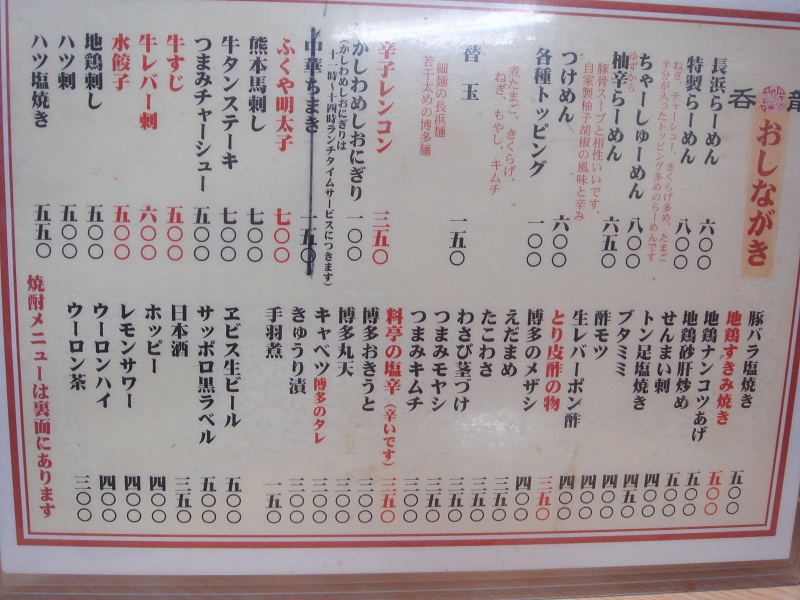 呑龍
おしながき
長浜らーめん 六〇〇
特製らーめん 八〇〇
ねぎ、チャーシュー、きくらげ多め、たまご
半分が入ったトッピング多めのらーめんです
ちゃーしゅーめん 八〇〇
柚辛らーめん 六五〇
ゆずから
豚骨スープと相性いいです、
自家製柚子胡椒の風味と辛み
つけめん 六〇〇
各種トッピング 一〇〇
煮たまご、きくらげ、
ねぎ、もやし、キムチ
替玉 一五〇
細麺の長浜麺
若干太めの博多麺
辛子レンコン 三五〇
かしわめしおにぎり 一〇〇
(かしわめしおにぎりは
十一時〜十四時ランチタイムサービスにつきます)
中華ちまき 一五〇
ふくや明太子 七〇〇
熊本馬刺し 七〇〇
牛タンステーキ 七〇〇
つまみチャーシュー 五〇〇
牛すじ 五〇〇
牛レバー刺 六〇〇
水餃子 五〇〇
地鶏刺し 五〇〇
ハツ刺 五〇〇
ハツ塩焼き 五五〇
豚バラ塩焼き 五〇〇
地鶏すきみ焼き 五〇〇
地鶏ナンコツあげ 五〇〇
地鶏砂肝炒め 五〇〇
せんまい刺 四〇〇
トン足塩焼き 四五〇
ブタミミ 四〇〇
酢モツ 四〇〇
生レバーポン酢 四〇〇
とり皮酢の物 三五〇
博多のメザシ 四〇〇
えだまめ 三五〇
たこわさ 三五〇
わさび茎づけ 三五〇
つまみモヤシ 三五〇
つまみキムチ 三〇〇
料亭の塩辛(辛いです) 三五〇
博多おきうと 三〇〇
博多丸天 三〇〇
キャベツ博多のタレ 三〇〇
きゅうり漬 三〇〇
手羽煮 一五〇
ヱビス生ビール 五〇〇
サッポロ黒ラベル 五〇〇
日本酒 三五〇
ホッピー 四〇〇
レモンサワー 四〇〇
ウーロンハイ 四〇〇
ウーロン茶 三〇〇
焼酎メニューは裏面にあります